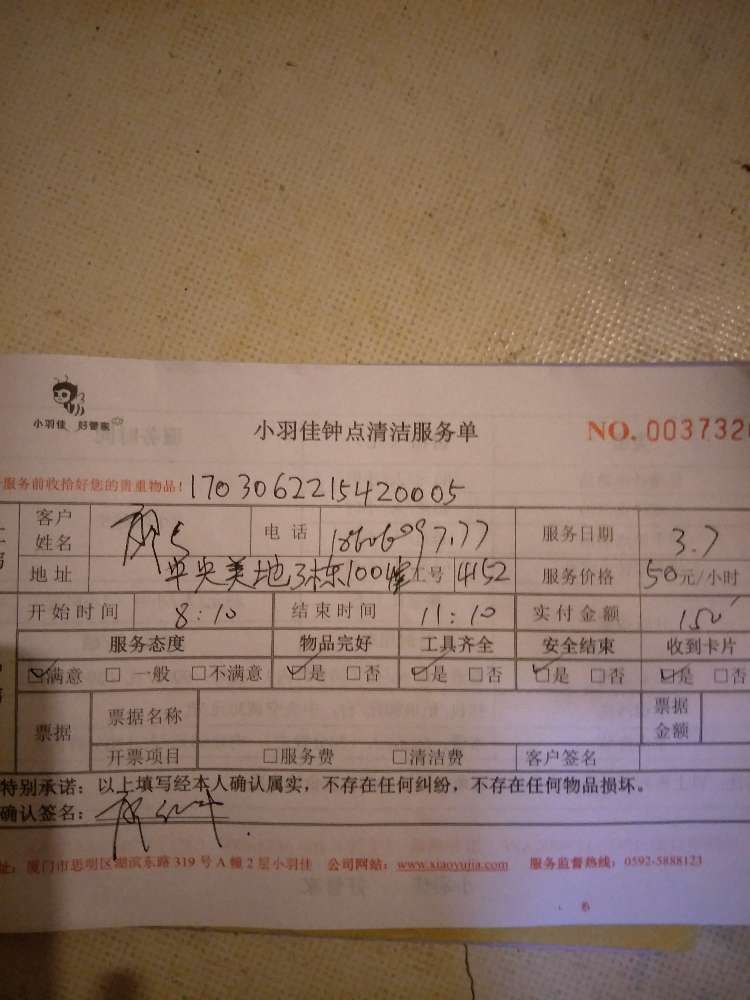 小羽佳 好管家
小羽佳钟点清洁服务单 NO. 0037320
服务前收拾好您的贵重物品！ 1703062215420005
客户姓名 电话 服务日期 3.7
地址 中央美地3栋1004室 工号 4152 服务价格 50元/小时
开始时间 8:10 结束时间 11:10 实付金额 150
服务态度 物品完好 工具齐全 安全结束 收到卡片
满意 □ 一般 □不满意 是 □否 是 □否 是 □否 是 □否
票据 票据名称 票据金额
开票项目 □服务费 □清洁费 客户签名
特别承诺：以上填写经本人确认属实，不存在任何纠纷，不存在任何物品损坏。
确认签名：
址：厦门市思明区湖滨东路 319 号 A 幢 2 层小羽佳 公司网站：www.xiaoyujia.com 服务监督热线：0592-5888123